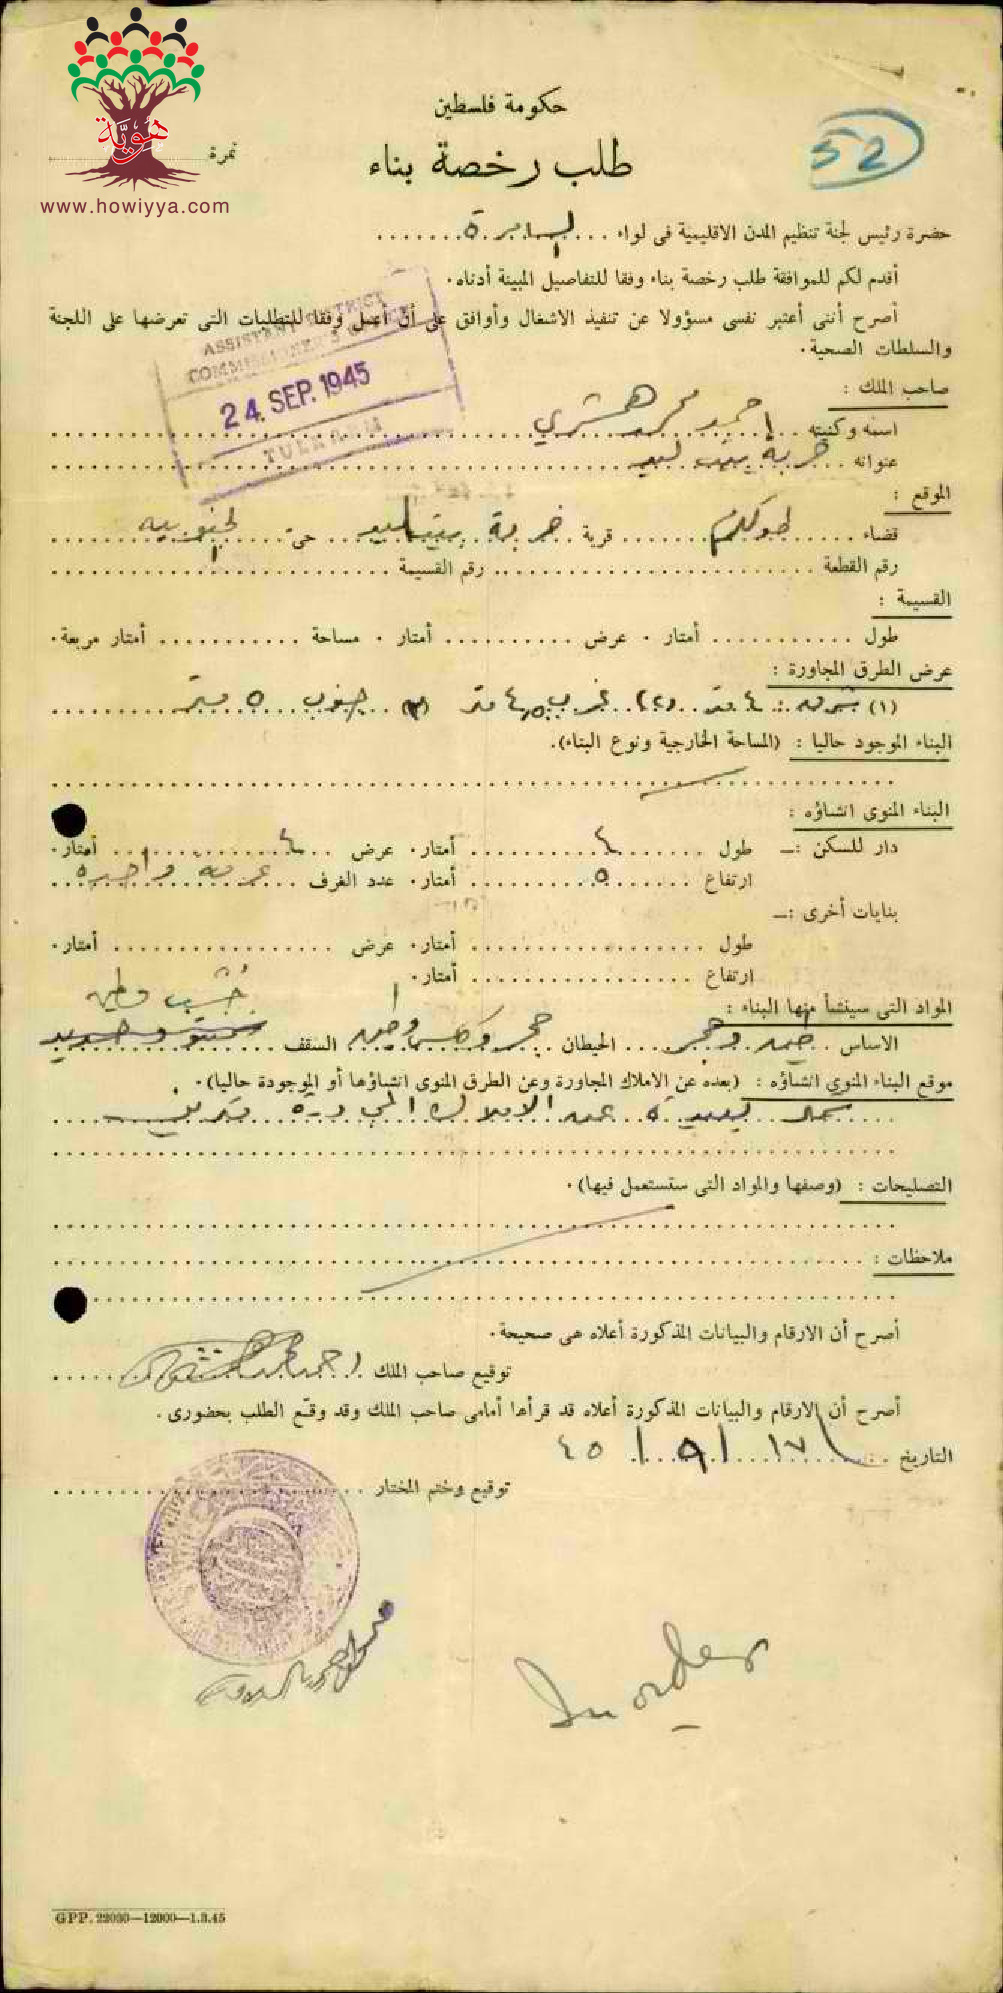 حكومة فلسطين
52
طلب رخصة بناء
نمرة
هوية
www.howiyya.com
حضرة رئيس لجنة تنظيم المدن الاقليمية فى لواء السامرة
أقدم لكم للموافقة طلب رخصة بناء وفقا للتفاصيل المبينة أدناه.
أصرح أننى أعتبر نفسى مسؤولا عن تنفيذ الاشغال وأوافق على أن أعمل وفقا للمتطلبات التى تعرضها على اللجنة
والسلطات الصحية.
ASSISTANT DISTRICT
COMMISSIONER'S OFFICE
24. SEP. 1945
TULKARM
صاحب الملك :
اسمه وكنيته احمد محمد هشري
عنوانه خربة بيت ليد
الموقع :
قضاء طولكرم قرية خربة بيت ليد حى الجنوبيه
رقم القطعة رقم القسيمة
القسيمة :
طول أمتار . عرض أمتار . مساحة أمتار مربعة.
عرض الطرق المجاورة :
(١) شرق ٤ متر (٢) غرب ٤ متر (٣) جنوب ٥ متر
البناء الموجود حاليا : (المساحة الخارجية ونوع البناء).
البناء المنوى انشاؤه :
دار للسكن :— طول ٤ أمتار. عرض ٤ أمتار.
ارتفاع ٥ أمتار. عدد الغرف غرفة واحده
بنايات أخرى :—
طول أمتار. عرض أمتار.
ارتفاع أمتار.
خشب وطين
المواد التى سينشأ منها البناء :
الاساس طين وحجر الحيطان حجر وكلس وطين السقف سمنتو وحديد
موقع البناء المنوي انشاؤه : (بعده عن الاملاك المجاورة وعن الطرق المنوى انشاؤها أو الموجودة حاليا).
بعيدة عن الاملاك المجاورة
التصليحات : (وصفها والمواد التى ستستعمل فيها).
ملاحظات :
أصرح أن الارقام والبيانات المذكورة أعلاه هى صحيحة.
توقيع صاحب الملك احمد محمد هشري
أصرح أن الارقام والبيانات المذكورة أعلاه قد قرأها أمامى صاحب الملك وقد وقع الطلب بحضورى.
التاريخ ١٧/٩/٤٥
توقيع وختم المختار
In order
GPP. 22030—12000—1.3.45